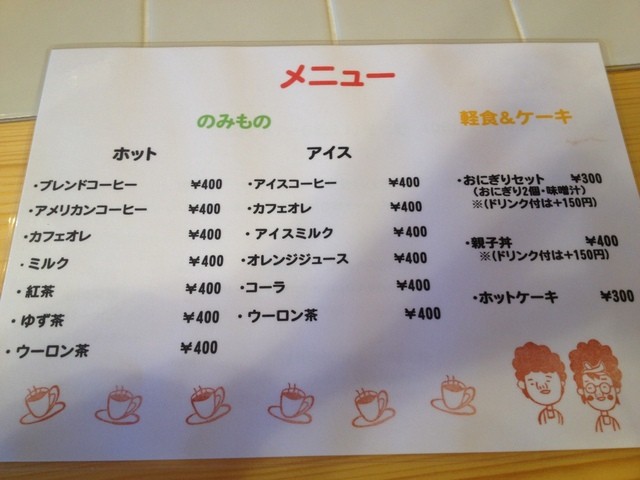 メニュー
のみもの
軽食&ケーキ
ホット
アイス
・ブレンドコーヒー ¥400
・アメリカンコーヒー ¥400
・カフェオレ ¥400
・ミルク ¥400
・紅茶 ¥400
・ゆず茶 ¥400
・ウーロン茶 ¥400
・アイスコーヒー ¥400
・カフェオレ ¥400
・アイスミルク ¥400
・オレンジジュース ¥400
・コーラ ¥400
・ウーロン茶 ¥400
・おにぎりセット ¥300
(おにぎり2個・味噌汁)
※(ドリンク付は+150円)
・親子丼 ¥400
※(ドリンク付は+150円)
・ホットケーキ ¥300